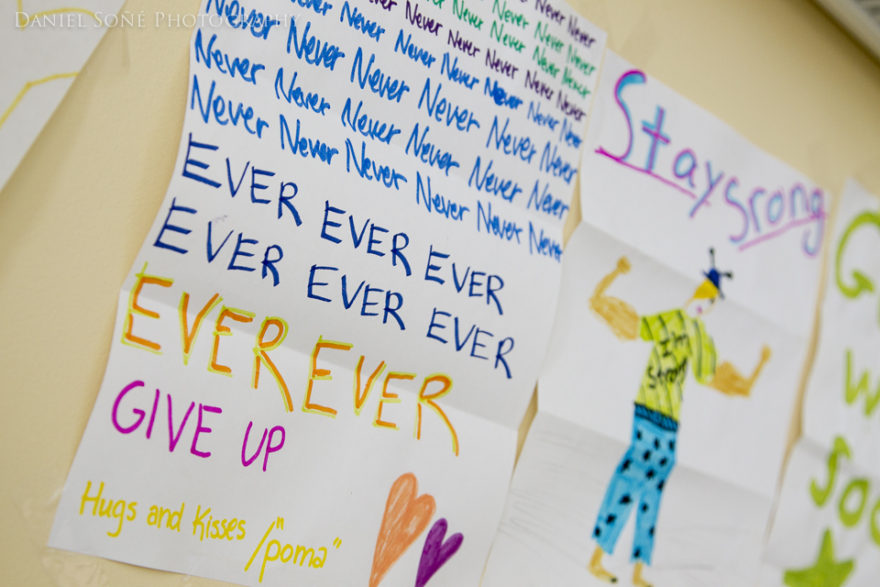 DANIEL SOÑÉ PHOTOGRAPHY
Never Never Never Never
Never Never Never Never
Never Never Never Never Never
Never Never Never Never Never Never
Never Never Never Never Never Never
Never Never Never Never Never Never
Never Never Never Never Never Never
EVER EVER EVER
EVER EVER EVER
EVER EVER
GIVE UP
Hugs and Kisses
/"poma"
Stay srong
I'm
strong